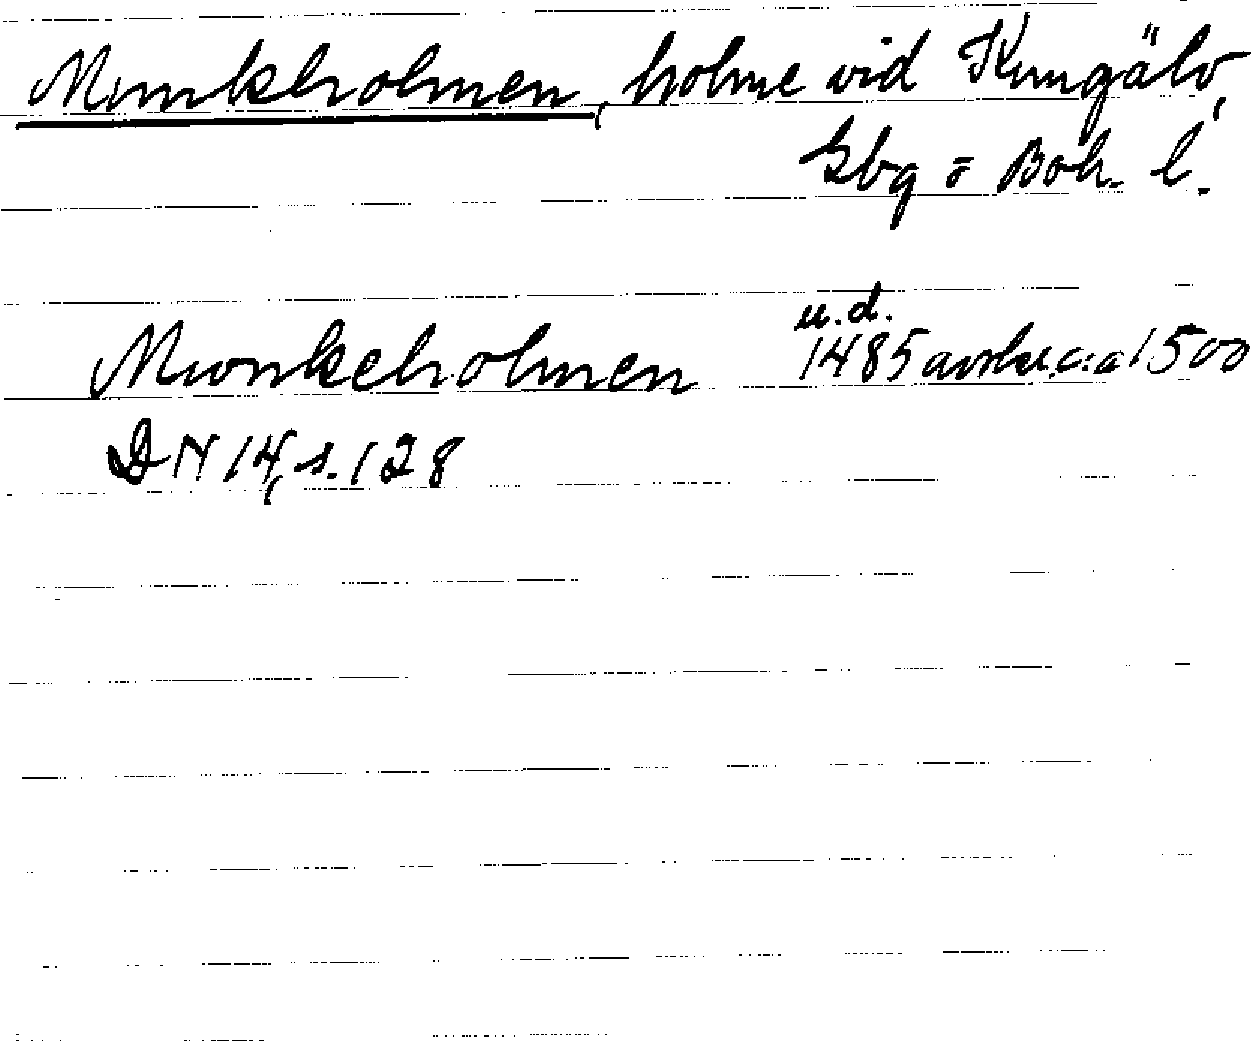 Munkholmen, holme vid Kungälv,
Gbg o Boh. l.
u.d.
Munkeholmen 1485 avskr. c:a 1500
DN 14, s. 128